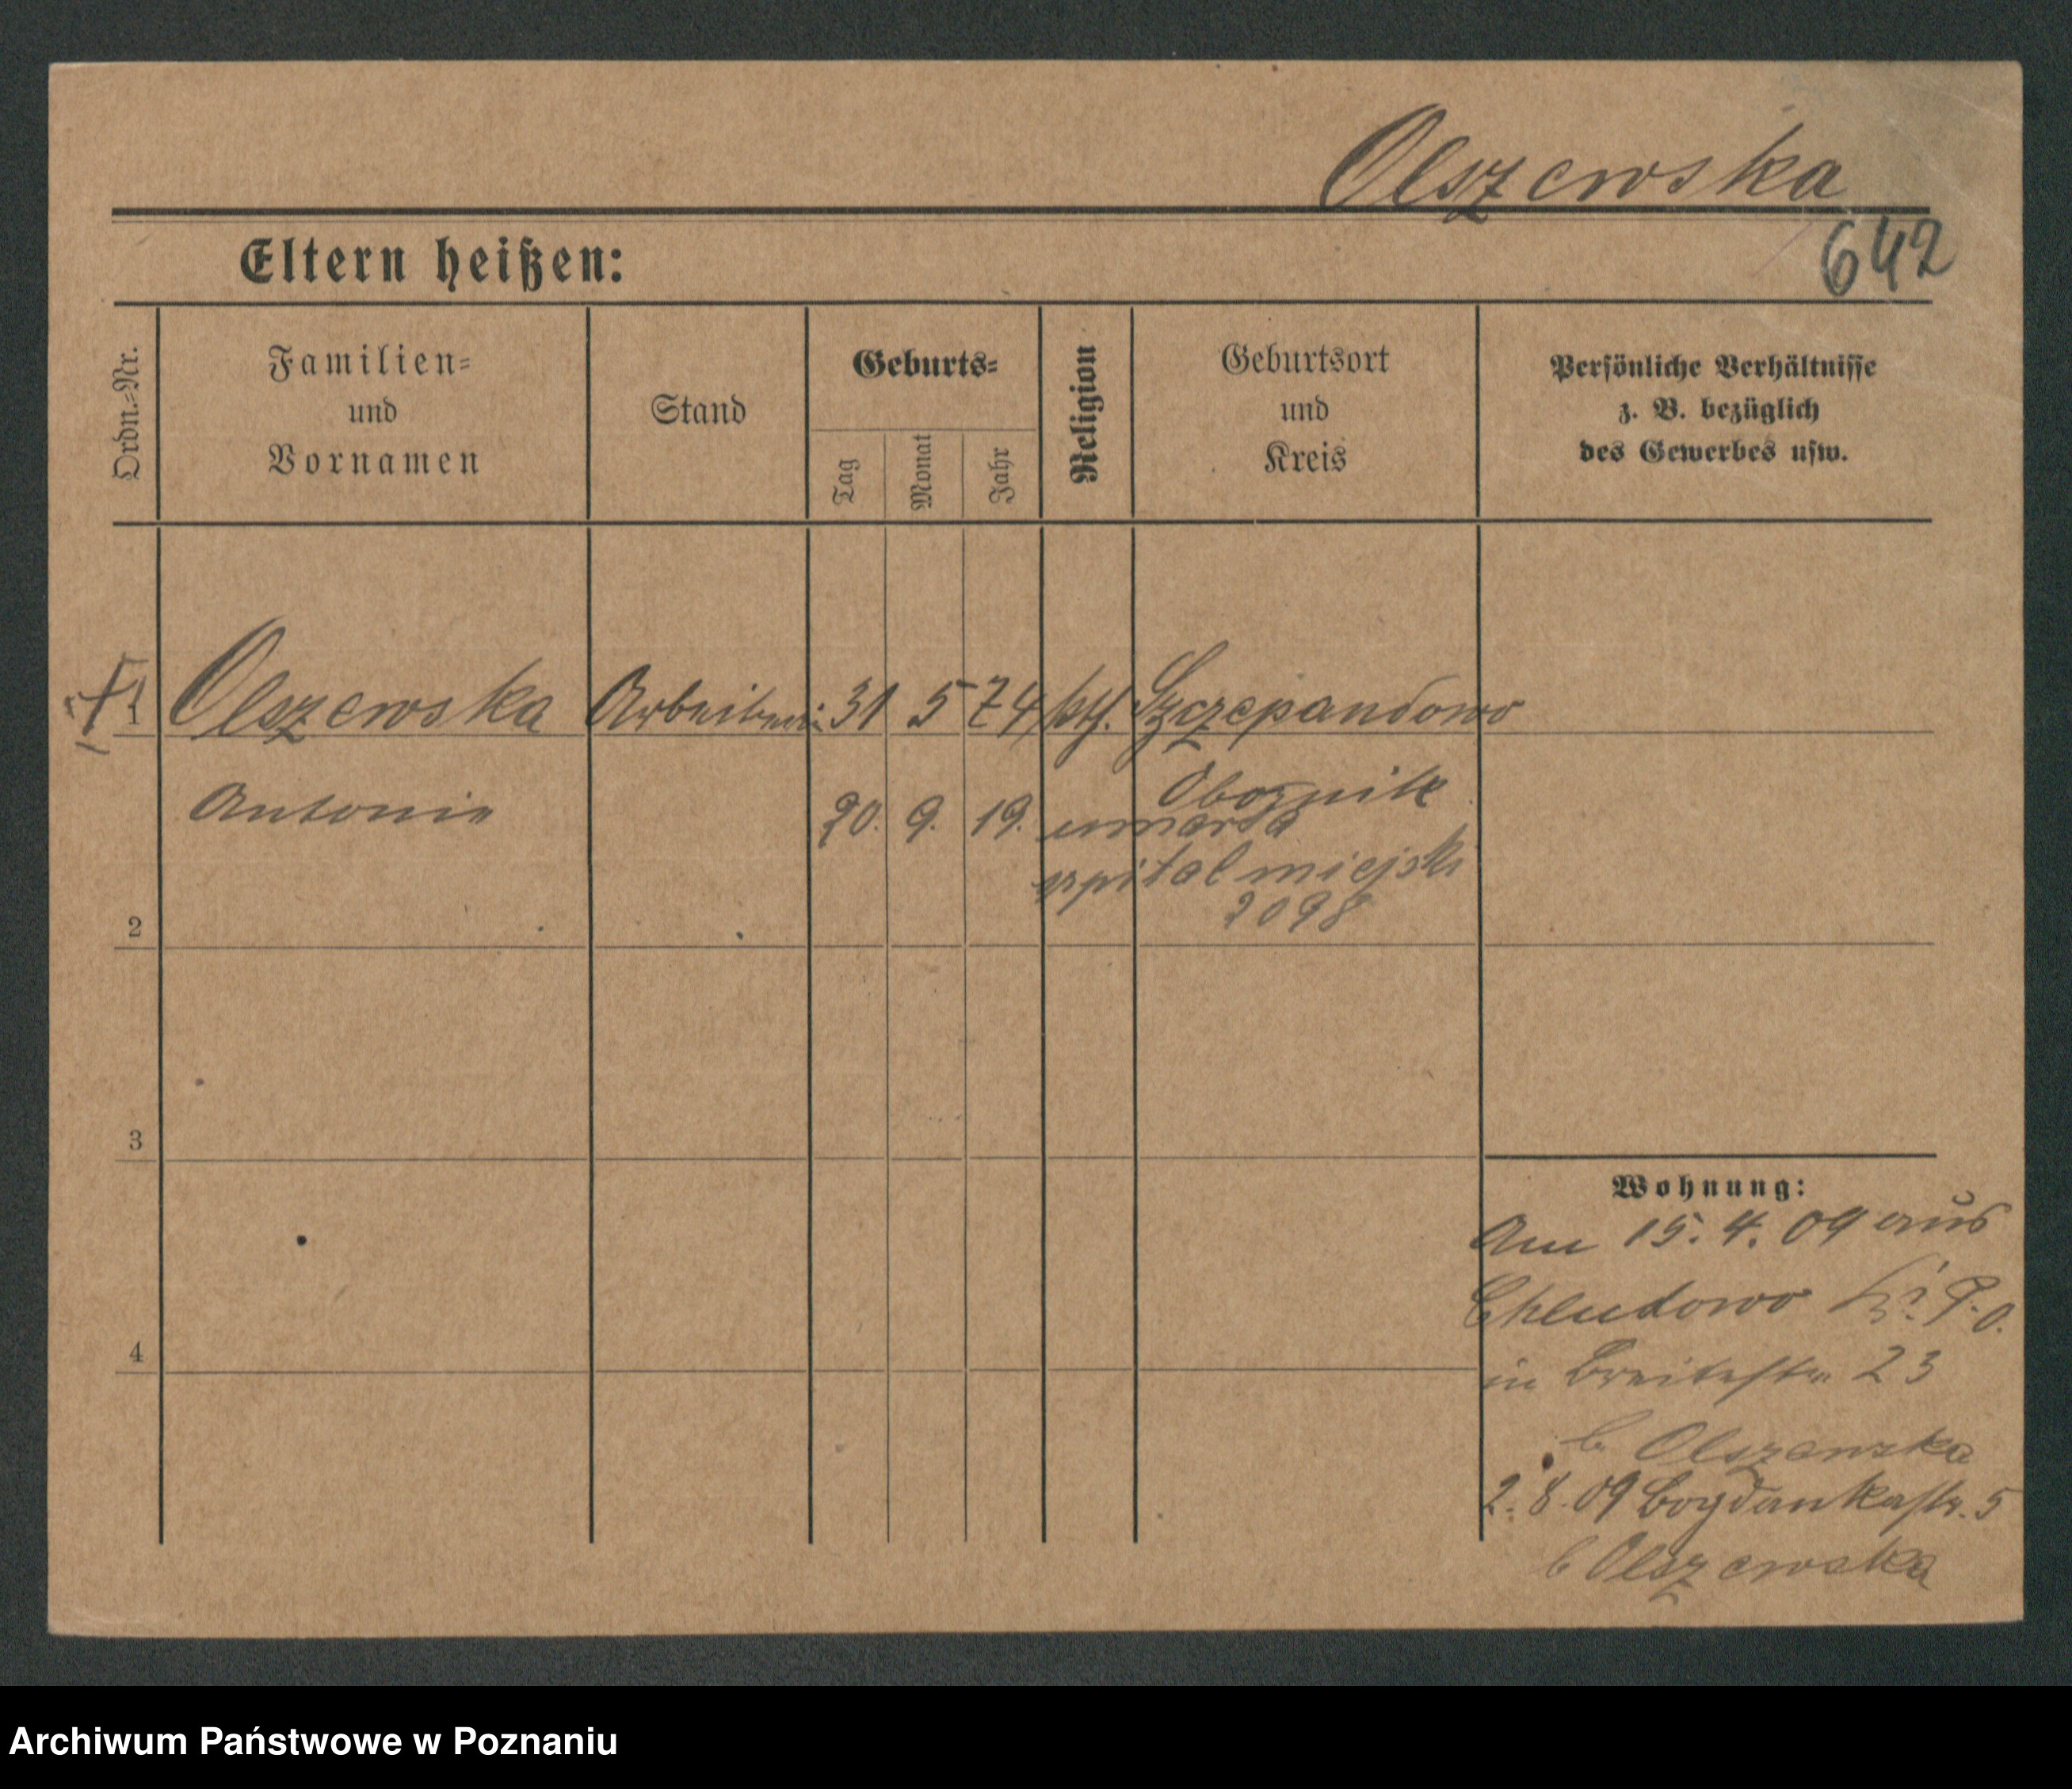 Olszewska
642
Eltern heißen:
Ordn.=Nr.
Familien=
und
Vornamen
Stand
Geburts=
Tag
Monat
Jahr
Religion
Geburtsort
und
Kreis
Persönliche Verhältnisse
z. B. bezüglich
des Gewerbes usw.
1 Olszewska Arbeiterin 31 5 74 kth. Szczepandowo
Antonie
Obornik
20. 9. 19. umarła
szpital miejski
2098
2
3
4
Wohnung:
Am 15. 4. 09 aus
Chludowo P. O.
in Breitestr. 23
b Olszewska
2. 8. 09 Bogdankastr. 5
b Olszewska
Archiwum Państwowe w Poznaniu